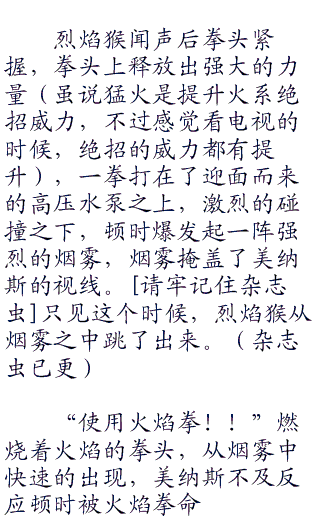 烈焰猴闻声后拳头紧
握，拳头上释放出强大的力
量（虽说猛火是提升火系绝
招威力，不过感觉看电视的
时候，绝招的威力都有提
升），一拳打在了迎面而来
的高压水泵之上，激烈的碰
撞之下，顿时爆发起一阵强
烈的烟雾，烟雾掩盖了美纳
斯的视线。[请牢记住杂志
虫]只见这个时候，烈焰猴从
烟雾之中跳了出来。（杂志
虫已更）
“使用火焰拳！！”燃
烧着火焰的拳头，从烟雾中
快速的出现，美纳斯不及反
应顿时被火焰拳命